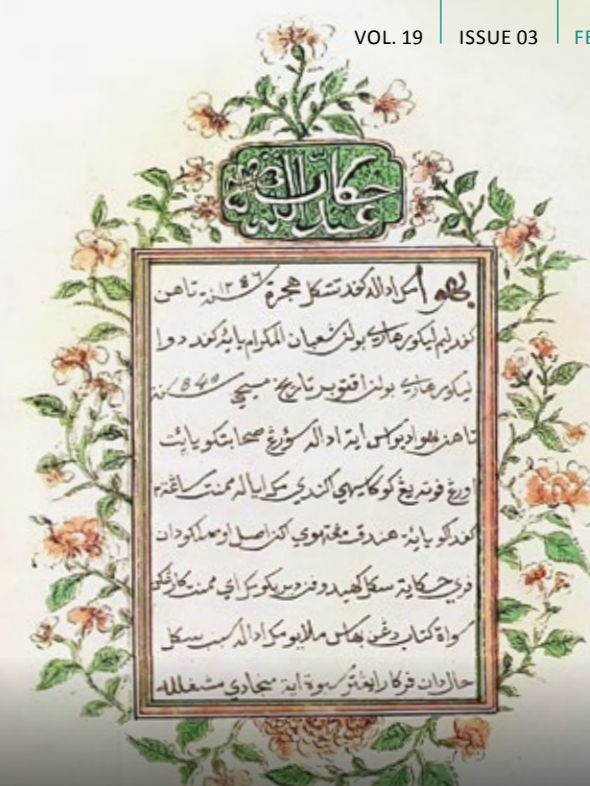 VOL. 19 ISSUE 03 FE
حكاية عبدالله
بهوا مک اداله کفد تتکل هجرة سنة ١٢٥٦ تاهن
کفد ليم ليکور هاري بولن شعبان المکرام يائيت کفد دوا
ليکور هاري بولن اقتوبر تاريخ مسيحي سنة 1840
تاهن بهوا ديواس ايت اداله سؤرڠ صحابتکو يائت
اورڠ فوتيه يڠ کو کاسيهي اکندي مک اياله ممنت ساڠت٢
کفداکو يائيت هندق مڠتهوي اکن اصل اوسولکو دان
فري حکاية سکل کهيدوفن ديريکو مک اي ممنت کارڠکن
سواة کتاب دڠن بهاس ملايو مک اداله سبب سکل
حال دان فرکارا يڠ ترسبوة ايت منجادي مشغلله